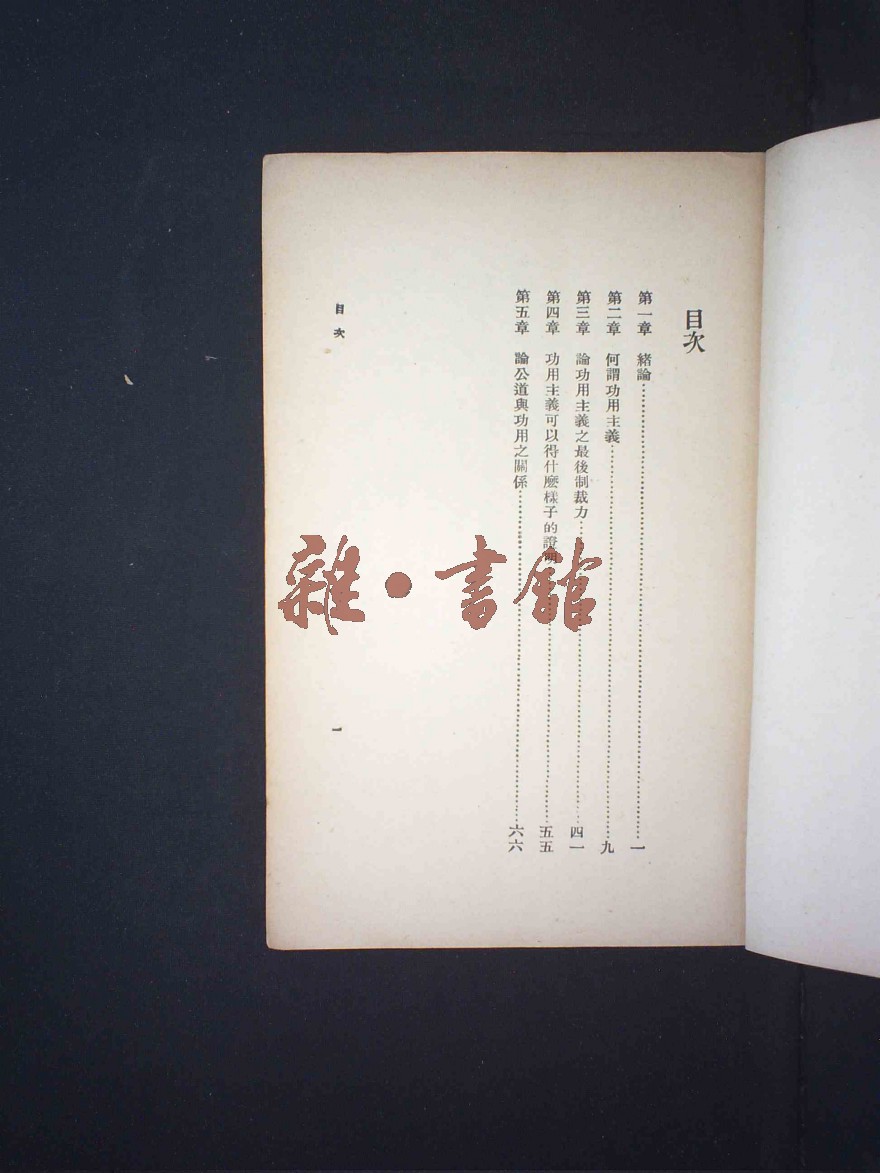 目次
第一章 緒論…………一
第二章 何謂功用主義…………九
第三章 論功用主義之最後制裁力…………四一
第四章 功用主義可以得什麽樣子的證明…………五五
第五章 論公道與功用之關係…………六六
目次
一
雜·書館